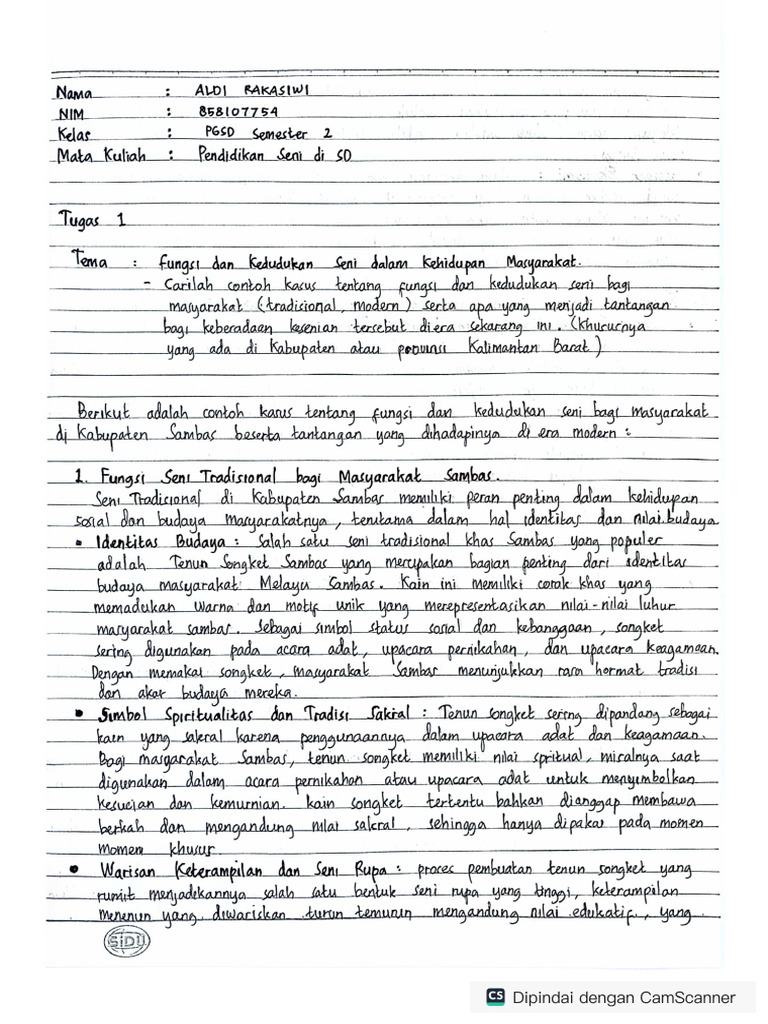 Nama : ALDI RAKASIWI
NIM : 858107754
Kelas : PGSD Semester 2
Mata Kuliah : Pendidikan Seni di SD
Tugas 1
Tema : Fungsi dan Kedudukan Seni dalam Kehidupan Masyarakat.
- Carilah contoh kasus tentang fungsi dan kedudukan seni bagi
masyarakat (tradisional, modern) serta apa yang menjadi tantangan
bagi keberadaan kesenian tersebut di era sekarang ini. (khususnya
yang ada di Kabupaten atau provinsi Kalimantan Barat)
Berikut adalah contoh kasus tentang fungsi dan kedudukan seni bagi masyarakat
di Kabupaten Sambas beserta tantangan yang dihadapinya di era modern :
1. Fungsi Seni Tradisional bagi Masyarakat Sambas.
Seni Tradisional di Kabupaten Sambas memiliki peran penting dalam kehidupan
sosial dan budaya masyarakatnya, terutama dalam hal identitas dan nilai budaya
• Identitas Budaya : Salah satu seni tradisional khas Sambas yang populer
adalah Tenun Songket Sambas yang merupakan bagian penting dari identitas
budaya masyarakat Melayu Sambas. Kain ini memiliki corak khas yang
memadukan warna dan motif unik yang merepresentasikan nilai-nilai luhur
masyarakat sambas. Sebagai simbol status sosial dan kebanggaan, songket
sering digunakan pada acara adat, upacara pernikahan, dan upacara keagamaan.
Dengan memakai songket, masyarakat Sambas menunjukkan rasa hormat tradisi
dan akar budaya mereka.
• Simbol Spiritualitas dan Tradisi Sakral : Tenun songket sering dipandang sebagai
kain yang sakral karena penggunaannya dalam upacara adat dan keagamaan.
Bagi masyarakat Sambas, tenun songket memiliki nilai spritual, misalnya saat
digunakan dalam acara pernikahan atau upacara adat untuk menyimbolkan
kesucian dan kemurnian. kain songket tertentu bahkan dianggap membawa
berkah dan mengandung nilai sakral, sehingga hanya dipakai pada momen
momen khusus.
• Warisan Keterampilan dan Seni Rupa : proses pembuatan tenun songket yang
rumit menjadikannya salah satu bentuk seni rupa yang tinggi, keterampilan
menenun yang diwariskan turun temurun mengandung nilai edukatif, yang
SIDU
CS Dipindai dengan CamScanner